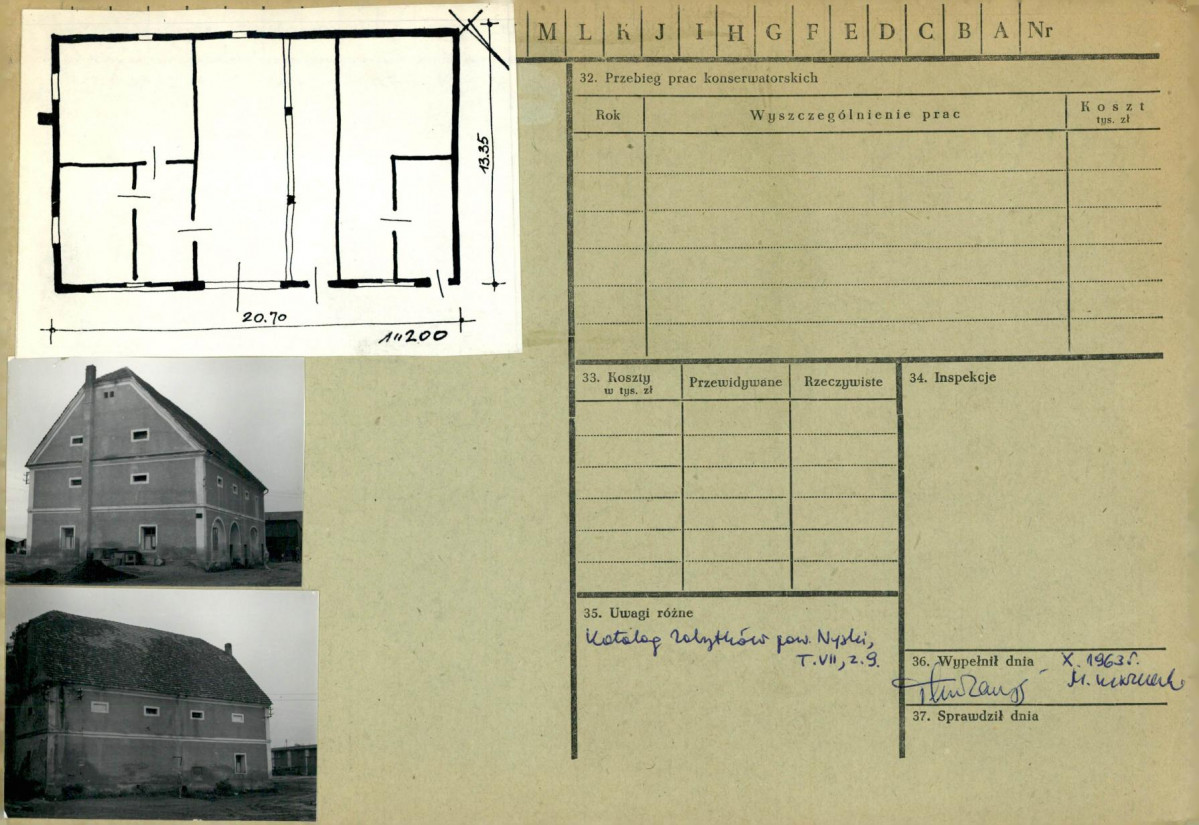 M L K J I H G F E D C B A Nr
13.35
20.70
1:200
32. Przebieg prac konserwatorskich
Rok Wyszczególnienie prac Koszt
tys. zł
33. Koszty Przewidywane Rzeczywiste
w tys. zł
34. Inspekcje
35. Uwagi różne
Katalog zabytków pow. Nyski,
T. VII, z. 9.
36. Wypełnił dnia X. 1963 r.
M.
37. Sprawdził dnia